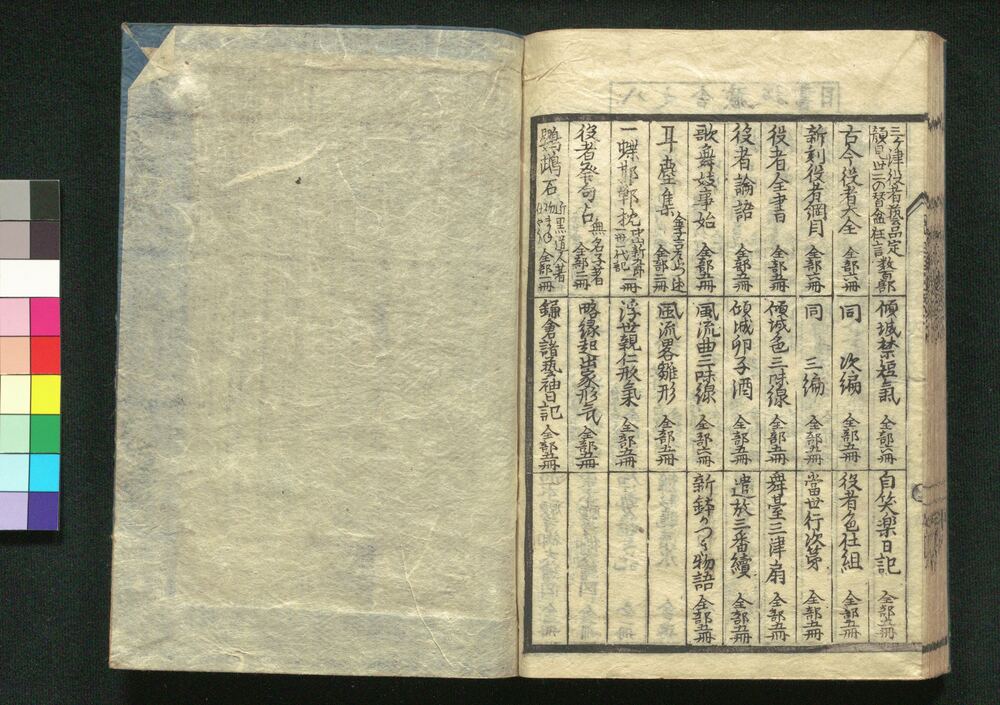 三ヶ津役者藝品定
顔見世三の替盆狂言 数百部
古今役者大全 全部六冊
新刻役者綱目 全部六冊
役者全書 全部五冊
役者論語 全部五冊
歌舞妓事始 全部五冊
耳塵集 金子吉左衛門述 全部二冊
一蝶邯鄲枕 中山新九郎一世一代記 一冊
役者發句占 無名子著 全部二冊
鸚鵡石 近黒道人著 全部一冊
傾城禁短氣 全部六冊
同 次編 全部五冊
同 三編 全部五冊
傾城色三味線 全部五冊
傾城卵子酒 全部五冊
風流曲三味線 全部六冊
風流畧雛形 全部五冊
浮世親仁形氣 全部五冊
略縁起出家形氣 全部五冊
鎌倉諸藝袖日記 全部五冊
自笑楽日記 全部五冊
役者色仕組 全部五冊
當世行次第 全部五冊
舞臺三津扇 全部五冊
遣放三番續 全部五冊
新鉢かつき物語 全部五冊